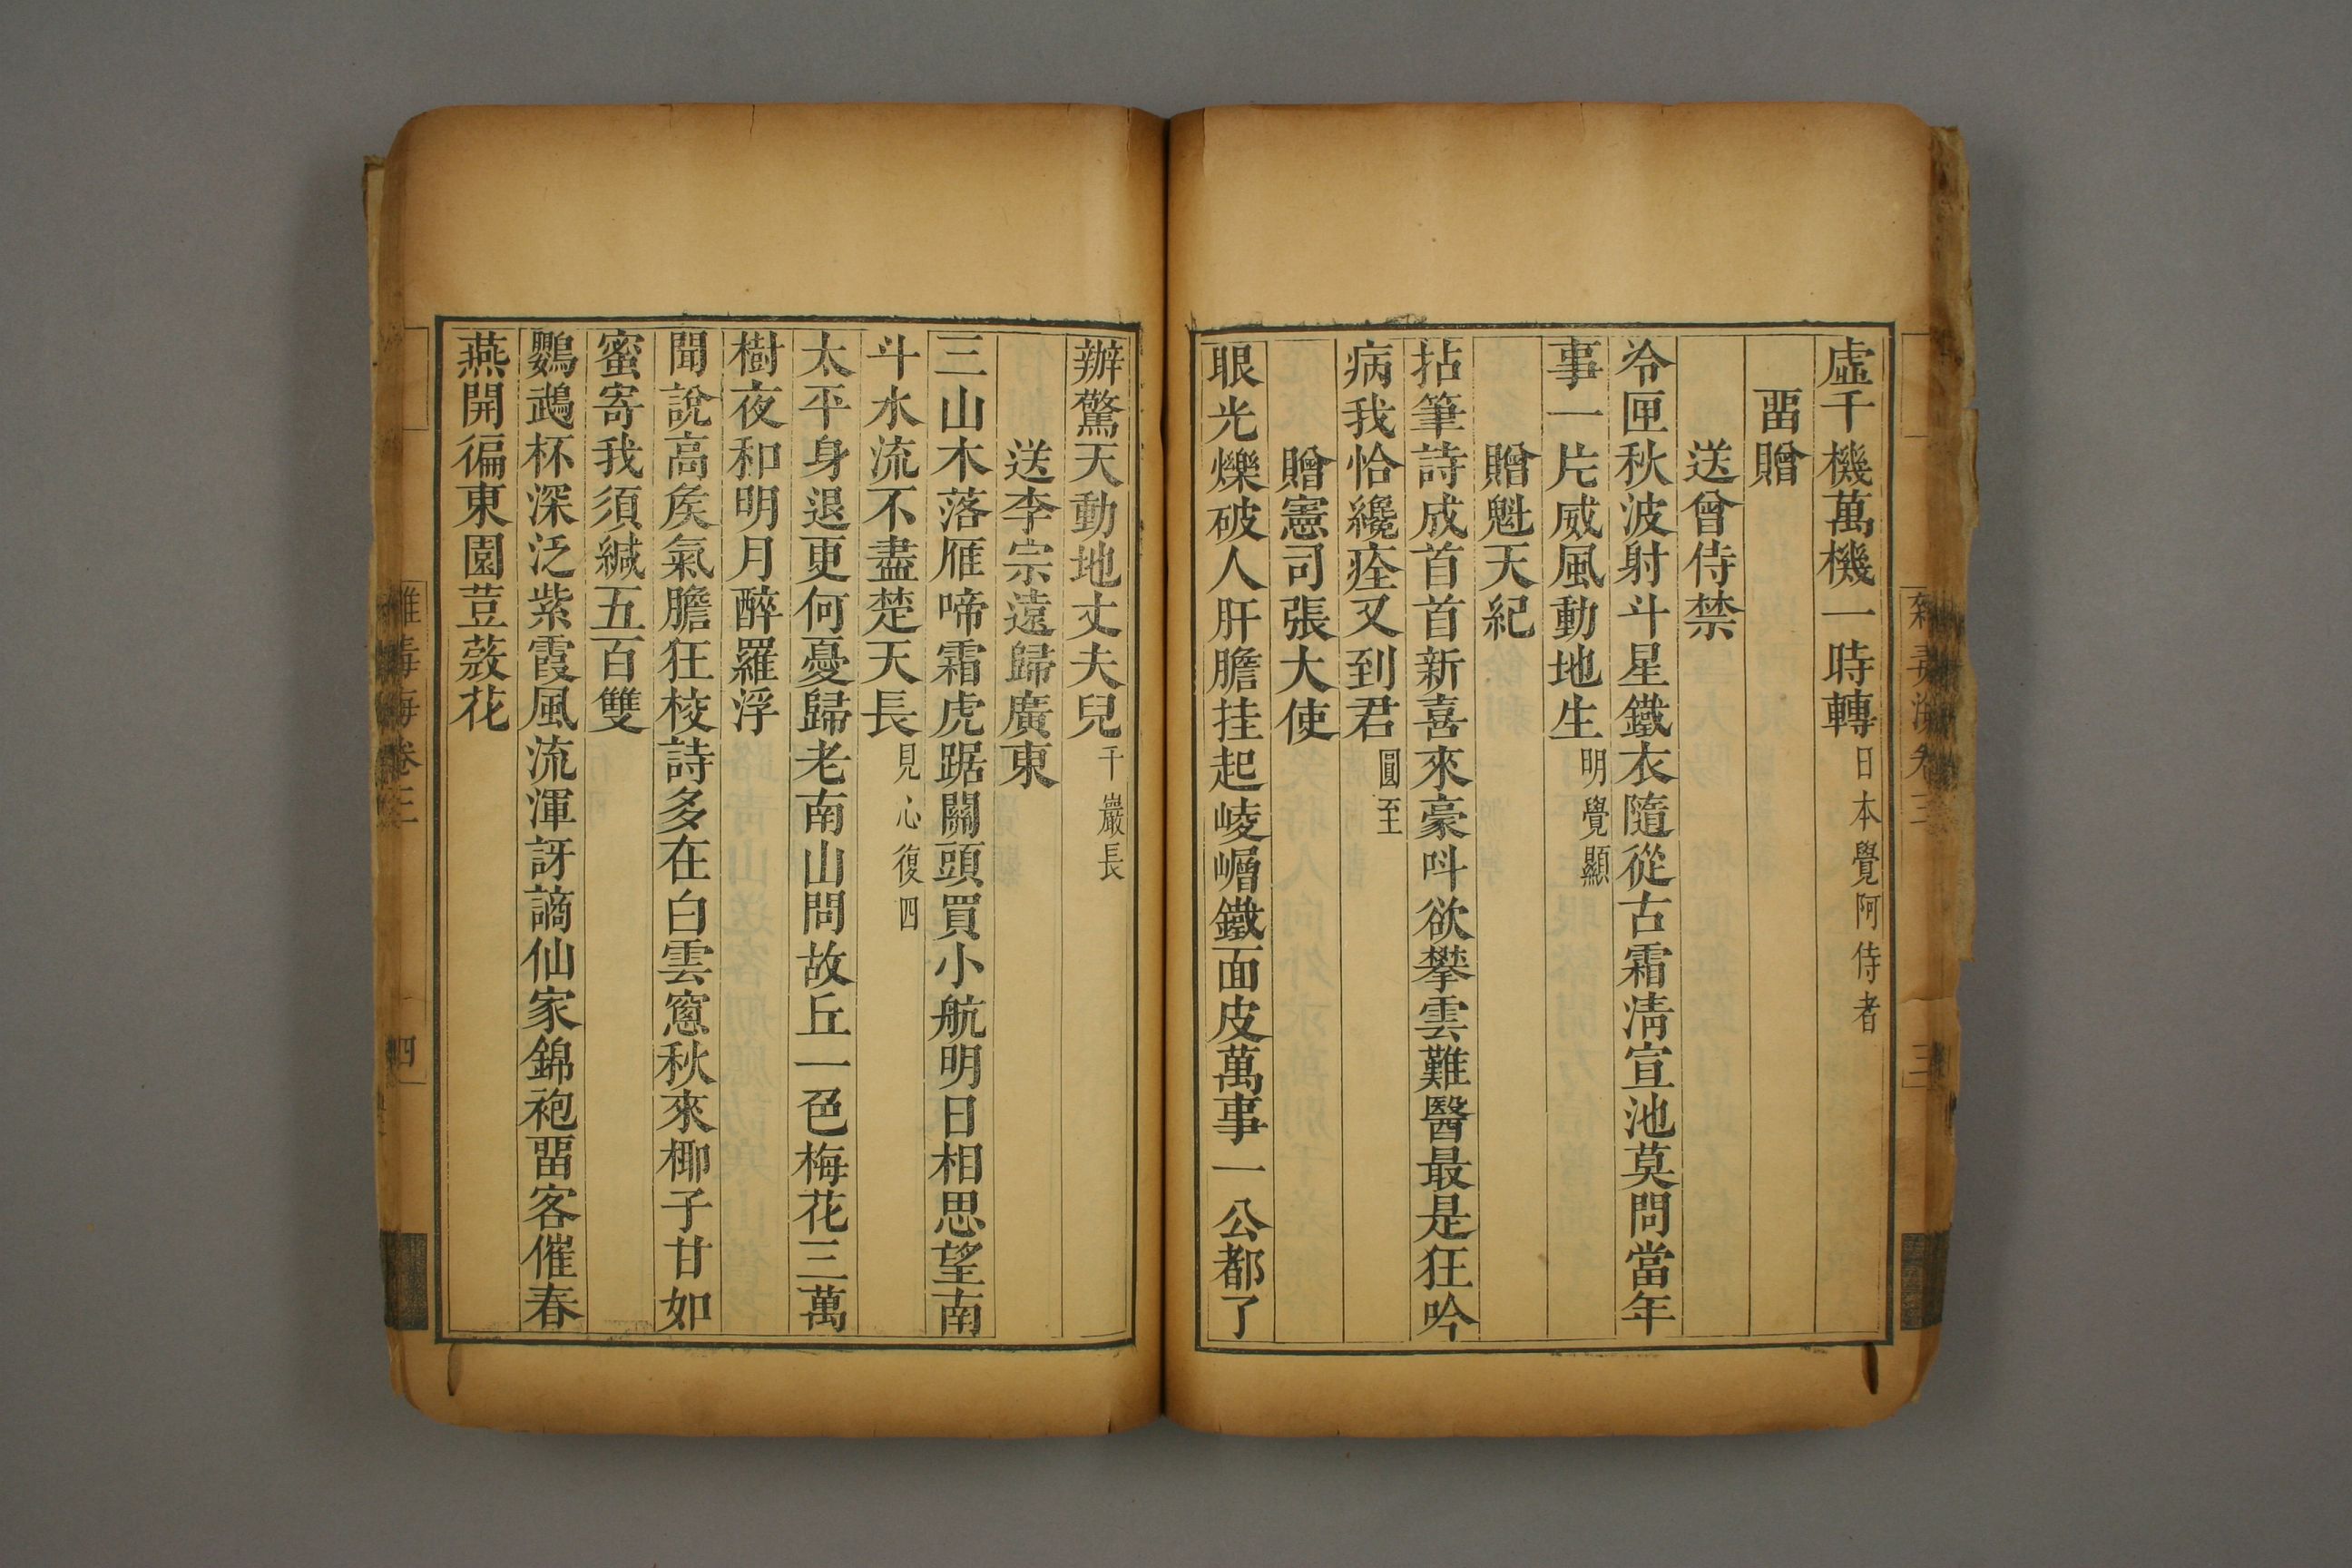 虛千機萬機一時轉日本覺阿侍者
畱贈
送曾侍禁
冷匣秋波射斗星鐵衣隨從古霜淸宣池莫問當年
事一片威風動地生明覺顯
贈魁天紀
拈筆詩成首首新喜來豪呌欲攀雲難醫最是狂吟
病我恰纔痊又到君圓至
贈憲司張大使
眼光爍破人肝膽挂起崚嶒鐵面皮萬事一公都了
辦驚天動地丈夫兒千巖長
送李宗遠歸廣東
三山木落雁啼霜虎踞關頭買小航明日相思望南
斗水流不盡楚天長見心復四
太平身退更何憂歸老南山問故丘一色梅花三萬
樹夜和明月醉羅浮
聞說高矦氣膽狂校詩多在白雲窻秋來椰子甘如
蜜寄我須緘五百雙
鸚鵡杯深泛紫霞風流渾訝謫仙家錦袍畱客催春
燕開徧東園荳蔲花
卷三
四
三